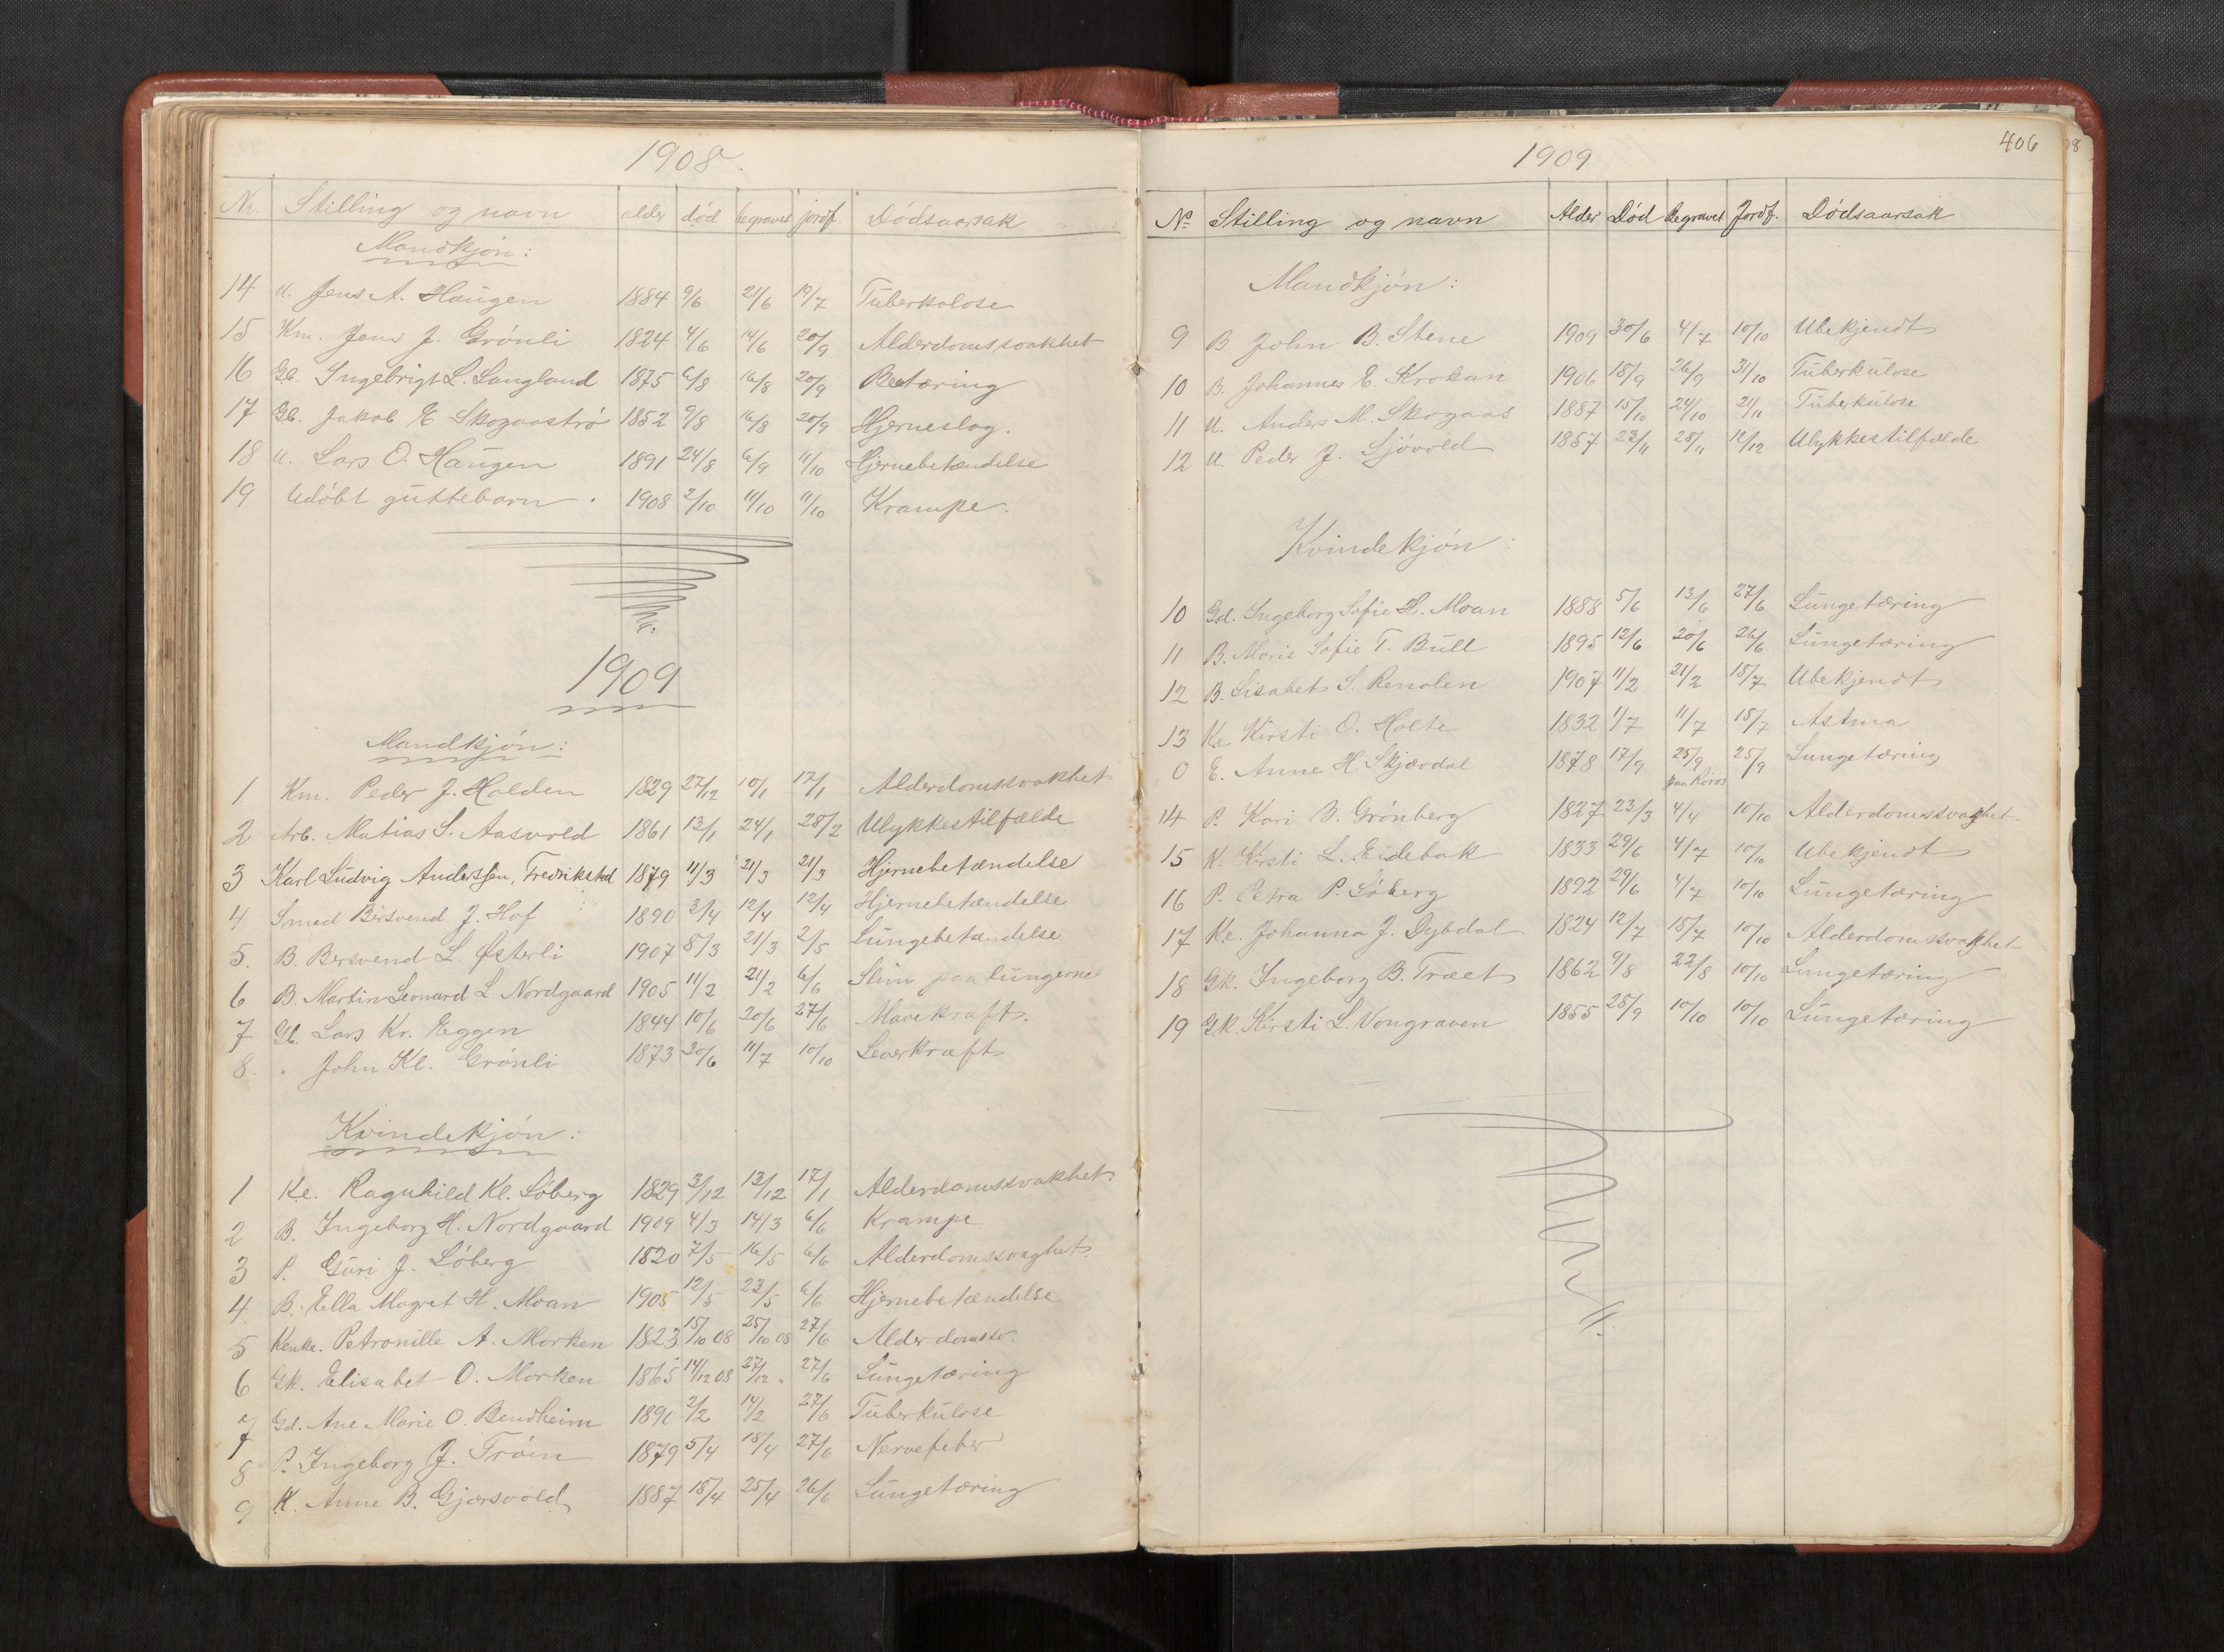 1908.
Nr. Stilling og navn alder död begravet jordf. Dödsaarsak
Mandkjön:
14 U. Jens A. Haugen 1884 9/6 21/6 19/7 Tuberkolose
15 Km. Jens J. Grönli 1824 4/6 14/6 20/9 Alderdomssvakhet
16 Gb. Ingebrigt L. Langland 1875 6/8 16/8 20/9 Bentæring
17 Gb. Jakob E Skogaaströ 1852 9/8 16/8 20/9 Hjerneslag.
18 U. Lars O. Haugen 1891 24/8 6/9 11/10 Hjernebetændelse
19 Udöbt guttebarn. 1908 2/10 11/10 11/10 Krampe.
1909
Mandkjön:
1 Km. Peder J. Halden 1829 27/12 10/1 17/1 Alderdomssvakhet
2 Arb. Matias S. Aasvold 1861 13/1 24/1 28/2 Ulykkestilfælde
3 Karl Ludvig Anderssen, Fredrikstad 1879 11/3 21/3 21/3 Hjernebetændelse
4 Smed Bersvend J. Hof 1890 3/4 12/4 12/4 Hjernebetændelse
5. B. Bersvend L. Østerli 1907 8/3 21/3 2/5 Lungebetændelse
6 B. Martin Leonard L. Nordgaard 1905 11/2 21/2 6/6 Slim paa lungerne
7 Gb. Lars Kr. Eggen 1844 10/6 20/6 27/6 Mavekræft.
8. " John Kl. Grönli 1873 30/6 11/7 10/10 Leverkræft
Kvindekjön:
1 Ke. Ragnhild Kl. Löberg 1829 3/12 13/12 17/1 Alderdomssvakhet
2 B. Ingeborg H. Nordgaard 1909 4/3 14/3 6/6 Krampe
3 P. Guri J. Löberg 1820 7/5 16/5 6/6 Alderdomssvaghet.
4. B. Ella Magret H. Moan 1905 12/5 23/5 6/6 Hjernebetændelse
5 Petronille A. Morken 1823 15/10 08 25/10 08 27/6 Alderdomssv.
6 Gk. Elisabet O. Morken 1865 14/12 08 27/12 " 27/6 Lungetæring
7 Gd. Ane Marie O. Bendheim 1890 2/2 14/2 27/6 Tuberkulose
8 P. Ingeborg J. Tröen 1879 5/4 18/4 27/6 Nervefeber
9 K. Anne B. Gjærsvold 1887 18/4 25/4 26/6 Lungetæring
406
08
1909
No Stilling og navn Alder Död Begravet Jordf. Dödsaarsak
Mandkjön:
9 B. John B. Stene 1909 30/6 4/7 10/10 Ubekjendt
10 B. Johannes E. Krokan 1906 18/9 26/9 31/10 Tuberkulose
11 U. Anders M. Skogaas 1887 15/10 24/10 21/11 Tuberkulose
12 U. Peder J. Sjövold 1857 23/11 28/11 12/12 Ulykkestilfælde
Kvindekjön:
10 Gd. Ingeborg Sofie H. Moan 1888 5/6 13/6 27/6 Lungetæring
11 B. Marie Sofie T. Bull 1895 12/6 20/6 26/6 Lungetæring
12 B. Lisabet S. Renolen 1907 11/2 21/2 18/7 Ubekjendt
13 Ke. Kirsti O. Holte 1832 1/7 11/7 18/7 Astma
0 E. Anne H. Skjærdal 1878 17/9 25/9 25/9 Lungetæring
paa Röros
14 P. Kari B. Grönberg 1827 23/3 4/4 10/10 Alderdomssvaghet.
15 K. Kirsti L. Eidebak 1833 29/6 4/7 10/10 Ubekjendt
16 P. Petra P. Löberg 1892 29/6 4/7 10/10 Lungetæring
17 Ke. Johanna J. Dybdal 1824 12/7 18/7 10/10 Alderdomssvakhet
18 Gk. Ingeborg B. Træet 1862 9/8 22/8 10/10 Lungetæring
19 Gk. Kirsti L. Vongraven 1855 28/9 10/10 10/10 Lungetæring